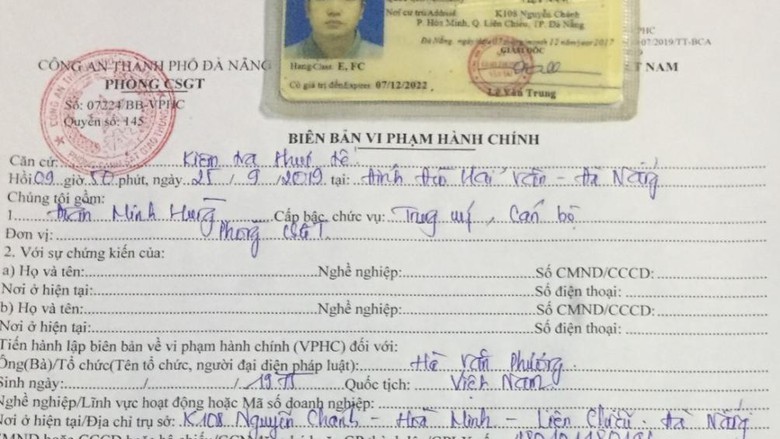 Nơi cư trú/Address
K108 Nguyễn Chánh
P. Hòa Minh, Q. Liên Chiểu, TP. Đà Nẵng
Đà Nẵng, ngày/date 07 tháng/month 12 năm/year 2017
GIÁM ĐỐC
Hạng/Class: E, FC
Có giá trị đến/Expires: 07/12/2022
Lê Văn Trung
VPHC
07/2019/TT-BCA
CÔNG AN THÀNH PHỐ ĐÀ NẴNG
NAM
PHÒNG CSGT
Số: 07224 BB-VPHC
Quyển số: 145
BIÊN BẢN VI PHẠM HÀNH CHÍNH
Căn cứ: Kiểm tra thực tế
Hồi 09 giờ 50 phút, ngày 25 / 9 / 2019 tại: đỉnh đèo Hải Vân - Đà Nẵng
Chúng tôi gồm:
1 Minh Hưng Cấp bậc, chức vụ: Trung uý, Cán bộ
Đơn vị: Phòng CSGT
2. Với sự chứng kiến của:
a) Họ và tên: Nghề nghiệp: Số CMND/CCCD:
Nơi ở hiện tại: Số điện thoại:
b) Họ và tên: Nghề nghiệp: Số CMND/CCCD:
Nơi ở hiện tại: Số điện thoại:
Tiến hành lập biên bản về vi phạm hành chính (VPHC) đối với:
Ông(Bà)/Tổ chức(Tên tổ chức, người đại diện pháp luật): Hà Văn Phương
Sinh ngày: / / Quốc tịch: Việt Nam
Nghề nghiệp/Lĩnh vực hoạt động hoặc Mã số doanh nghiệp:
Nơi ở hiện tại/Địa chỉ trụ sở: K108 Nguyễn Chánh - Hoà Minh - Liên Chiểu - Đà Nẵng